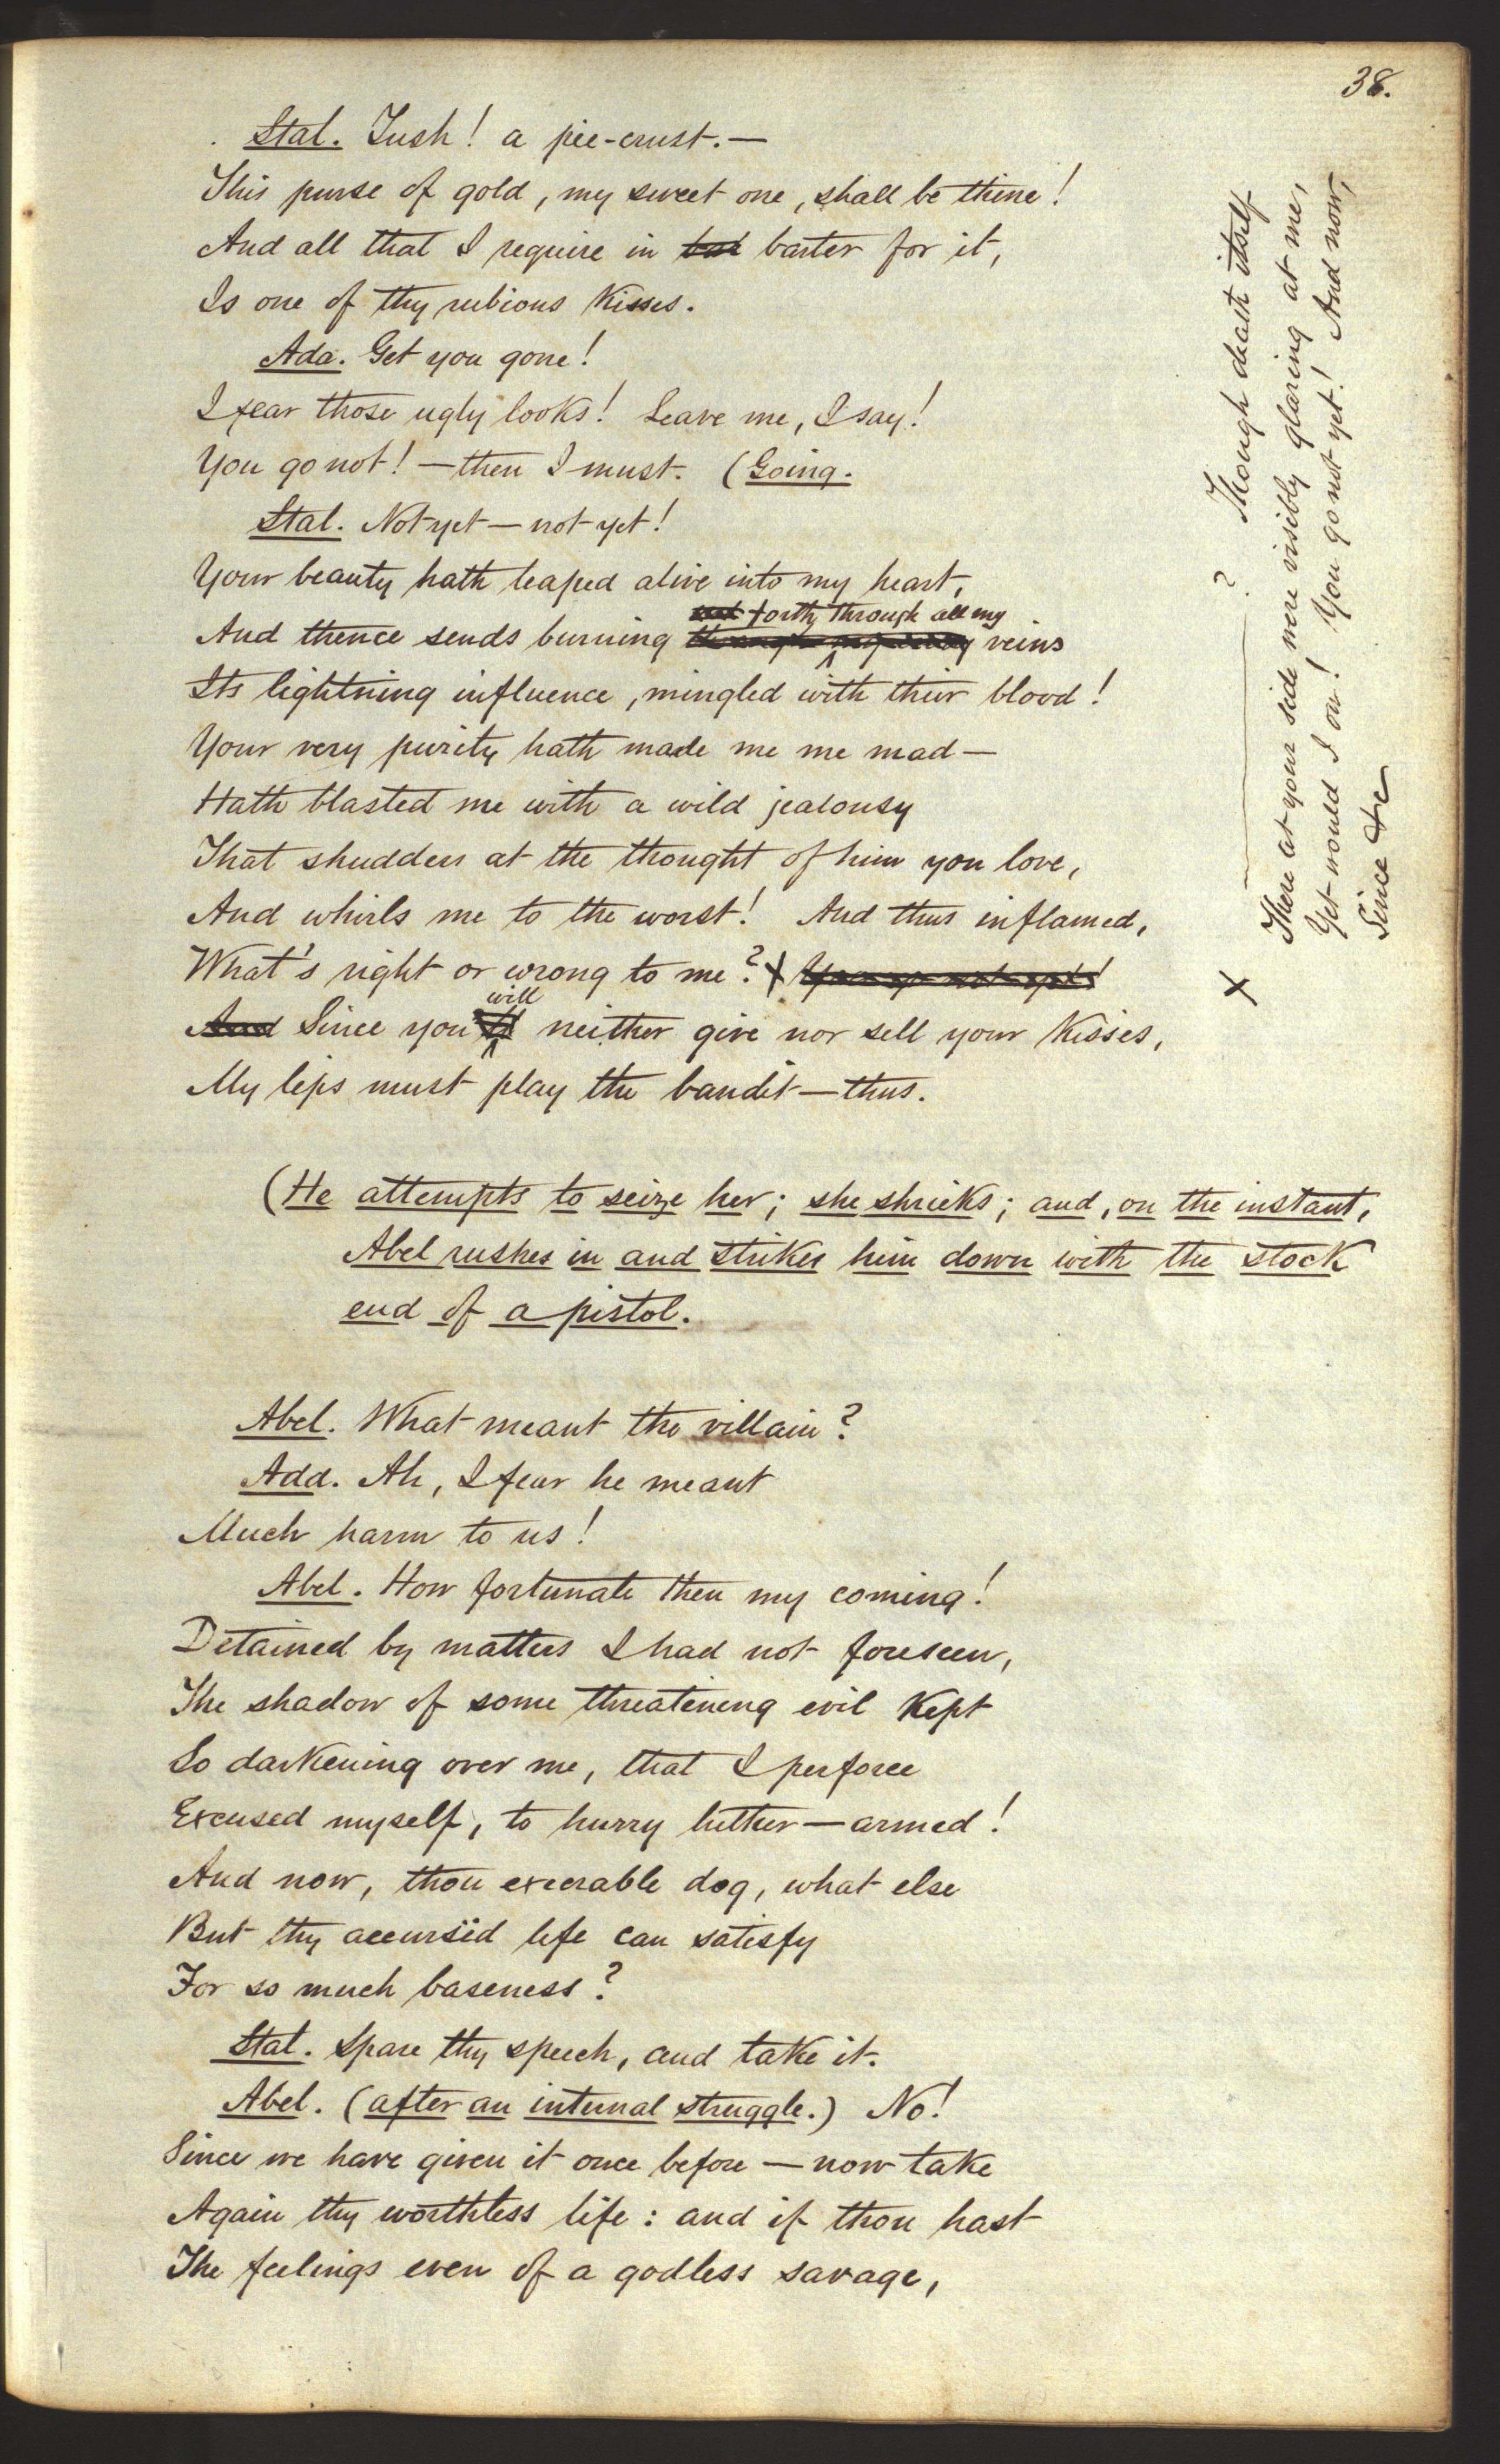 38.
Stal. Tush! a pie-crust.—
This purse of gold, my sweet one, shall be thine!
And all that I require in bar barter for it,
Is one of thy rubious kisses.
Ada. Get you gone!
I fear those ugly looks! Leave me, I say!
You go not!—then I must. (Going.
Stal. Not yet—not yet!
Your beauty hath leaped alive into my heart,
forth, through all my
And thence sends burning through veins
Its lightning influence, mingled with their blood!
Your very purity hath made me me mad—
Hath blasted me with a wild jealousy
That shudders at the thought of him you love,
And whirls me to the worst! And thus inflamed,
What's right or wrong to me? X You go not yet!
will
And Since you'll neither give nor sell your kisses,
My lips must play the bandit—thus.
(He attempts to seize her; she shrieks; and, on the instant,
Abel rushes in and strikes him down with the stock
end of a pistol.
Abel. What meant the villain?
Ada. Ah, I fear he meant
Much harm to us!
Abel. How fortunate then my coming!
Detained by matters I had not foreseen,
The shadow of some threatening evil kept
So darkening over me, that I perforce
Excused myself, to hurry hither—armed!
And now, thou execrable dog, what else
But thy accursëd life can satisfy
For so much baseness?
Stal. Spare thy speech, and take it.
Abel. (after an internal struggle.) No!
Since we have given it once before—now take
Again thy worthless life: and if thou hast
The feelings even of a godless savage,
X
——? Though death itself
There at your side were visibly glaring at me,
Yet would I on! You go not yet! And now,
Since &c